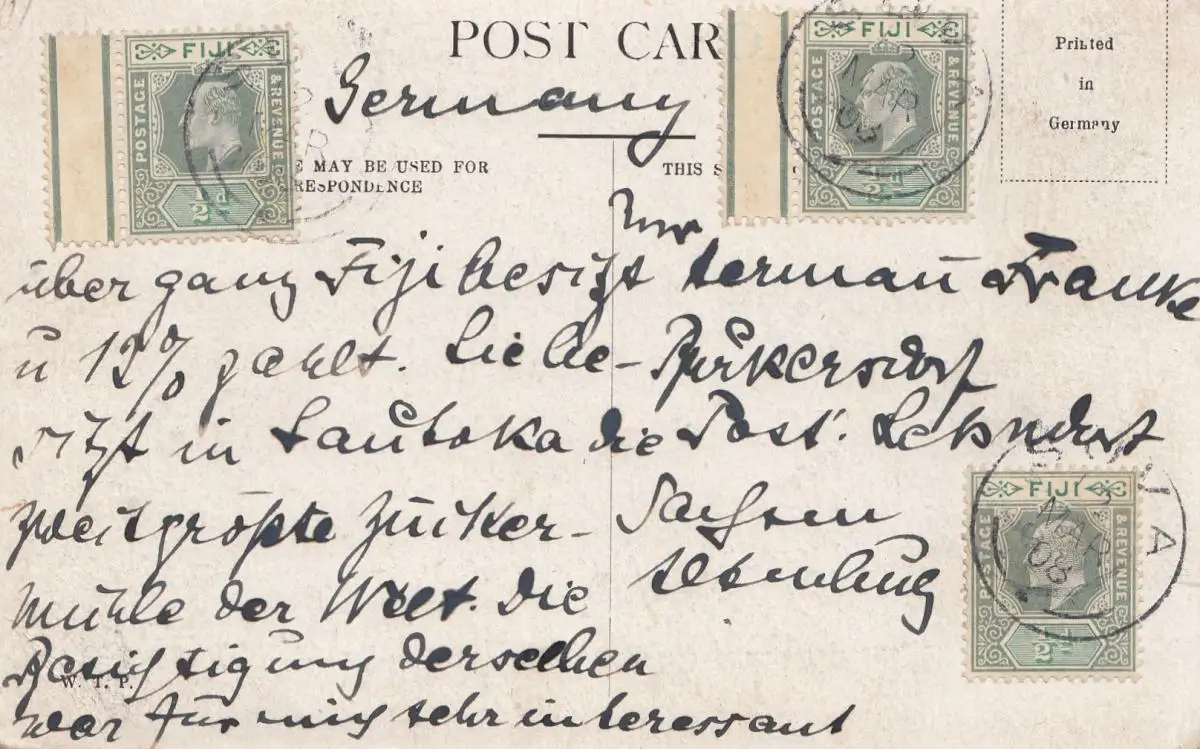 POST CAR
Germany
FIJI
POSTAGE & REVENUE
½d
FIJI
POSTAGE & REVENUE
½d
MAR
08
Printed
in
Germany
MAY BE USED FOR
RESPONDENCE
THIS S
über ganz Fiji besitzt
u 12% zahlt. Liebe-
sitzt in Lautoka die
zweitgrößte Zucker-
mühle der Welt. Die
Besichtigung derselben
war für mich sehr interessant
Herman Franke
Post. Lehndorf
Sachsen
Altenburg
FIJI
POSTAGE & REVENUE
½d
SUVA
MAR
08
W. T. P.